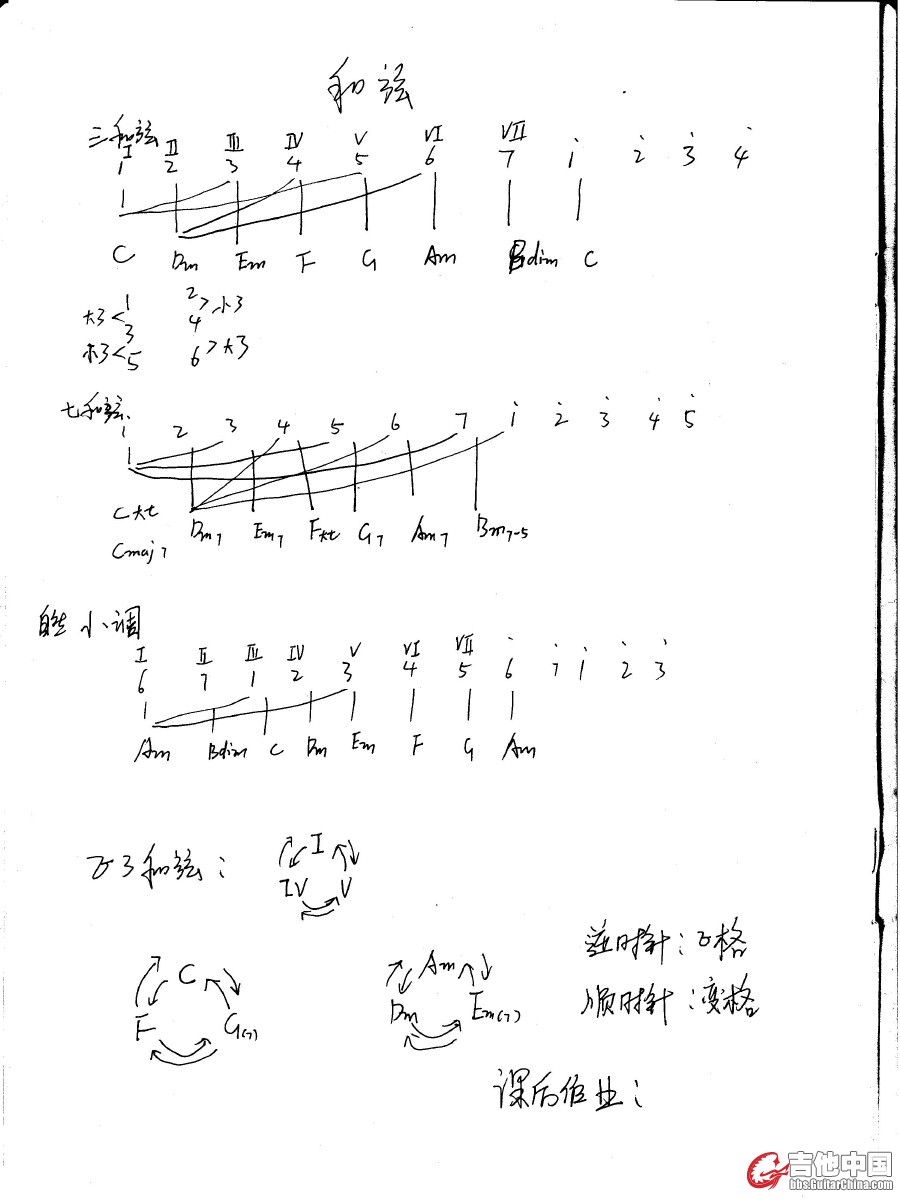 和弦
三和弦
I II III IV V VI VII
1 2 3 4 5 6 7 i 2̇ 3̇ 4̇
C Dm Em F G Am Bdim C
大3 < 1 2 > 小3
3 4
小3 < 5 6 > 大3
七和弦.
1 2 3 4 5 6 7 i 2̇ 3̇ 4̇ 5̇
C大七 Dm7 Em7 F大七 G7 Am7 Bm7-5
Cmaj7
自然小调
I II III IV V VI VII
6 7 1 2 3 4 5 6̇ 7̇ i 2̇ 3̇
Am Bdim C Dm Em F G Am
正3和弦:
I
IV V
逆时针:正格
C Am
顺时针:变格
F G(7) Dm Em(7)
课后作业:
吉他中国
bbs.GuitarChina.com